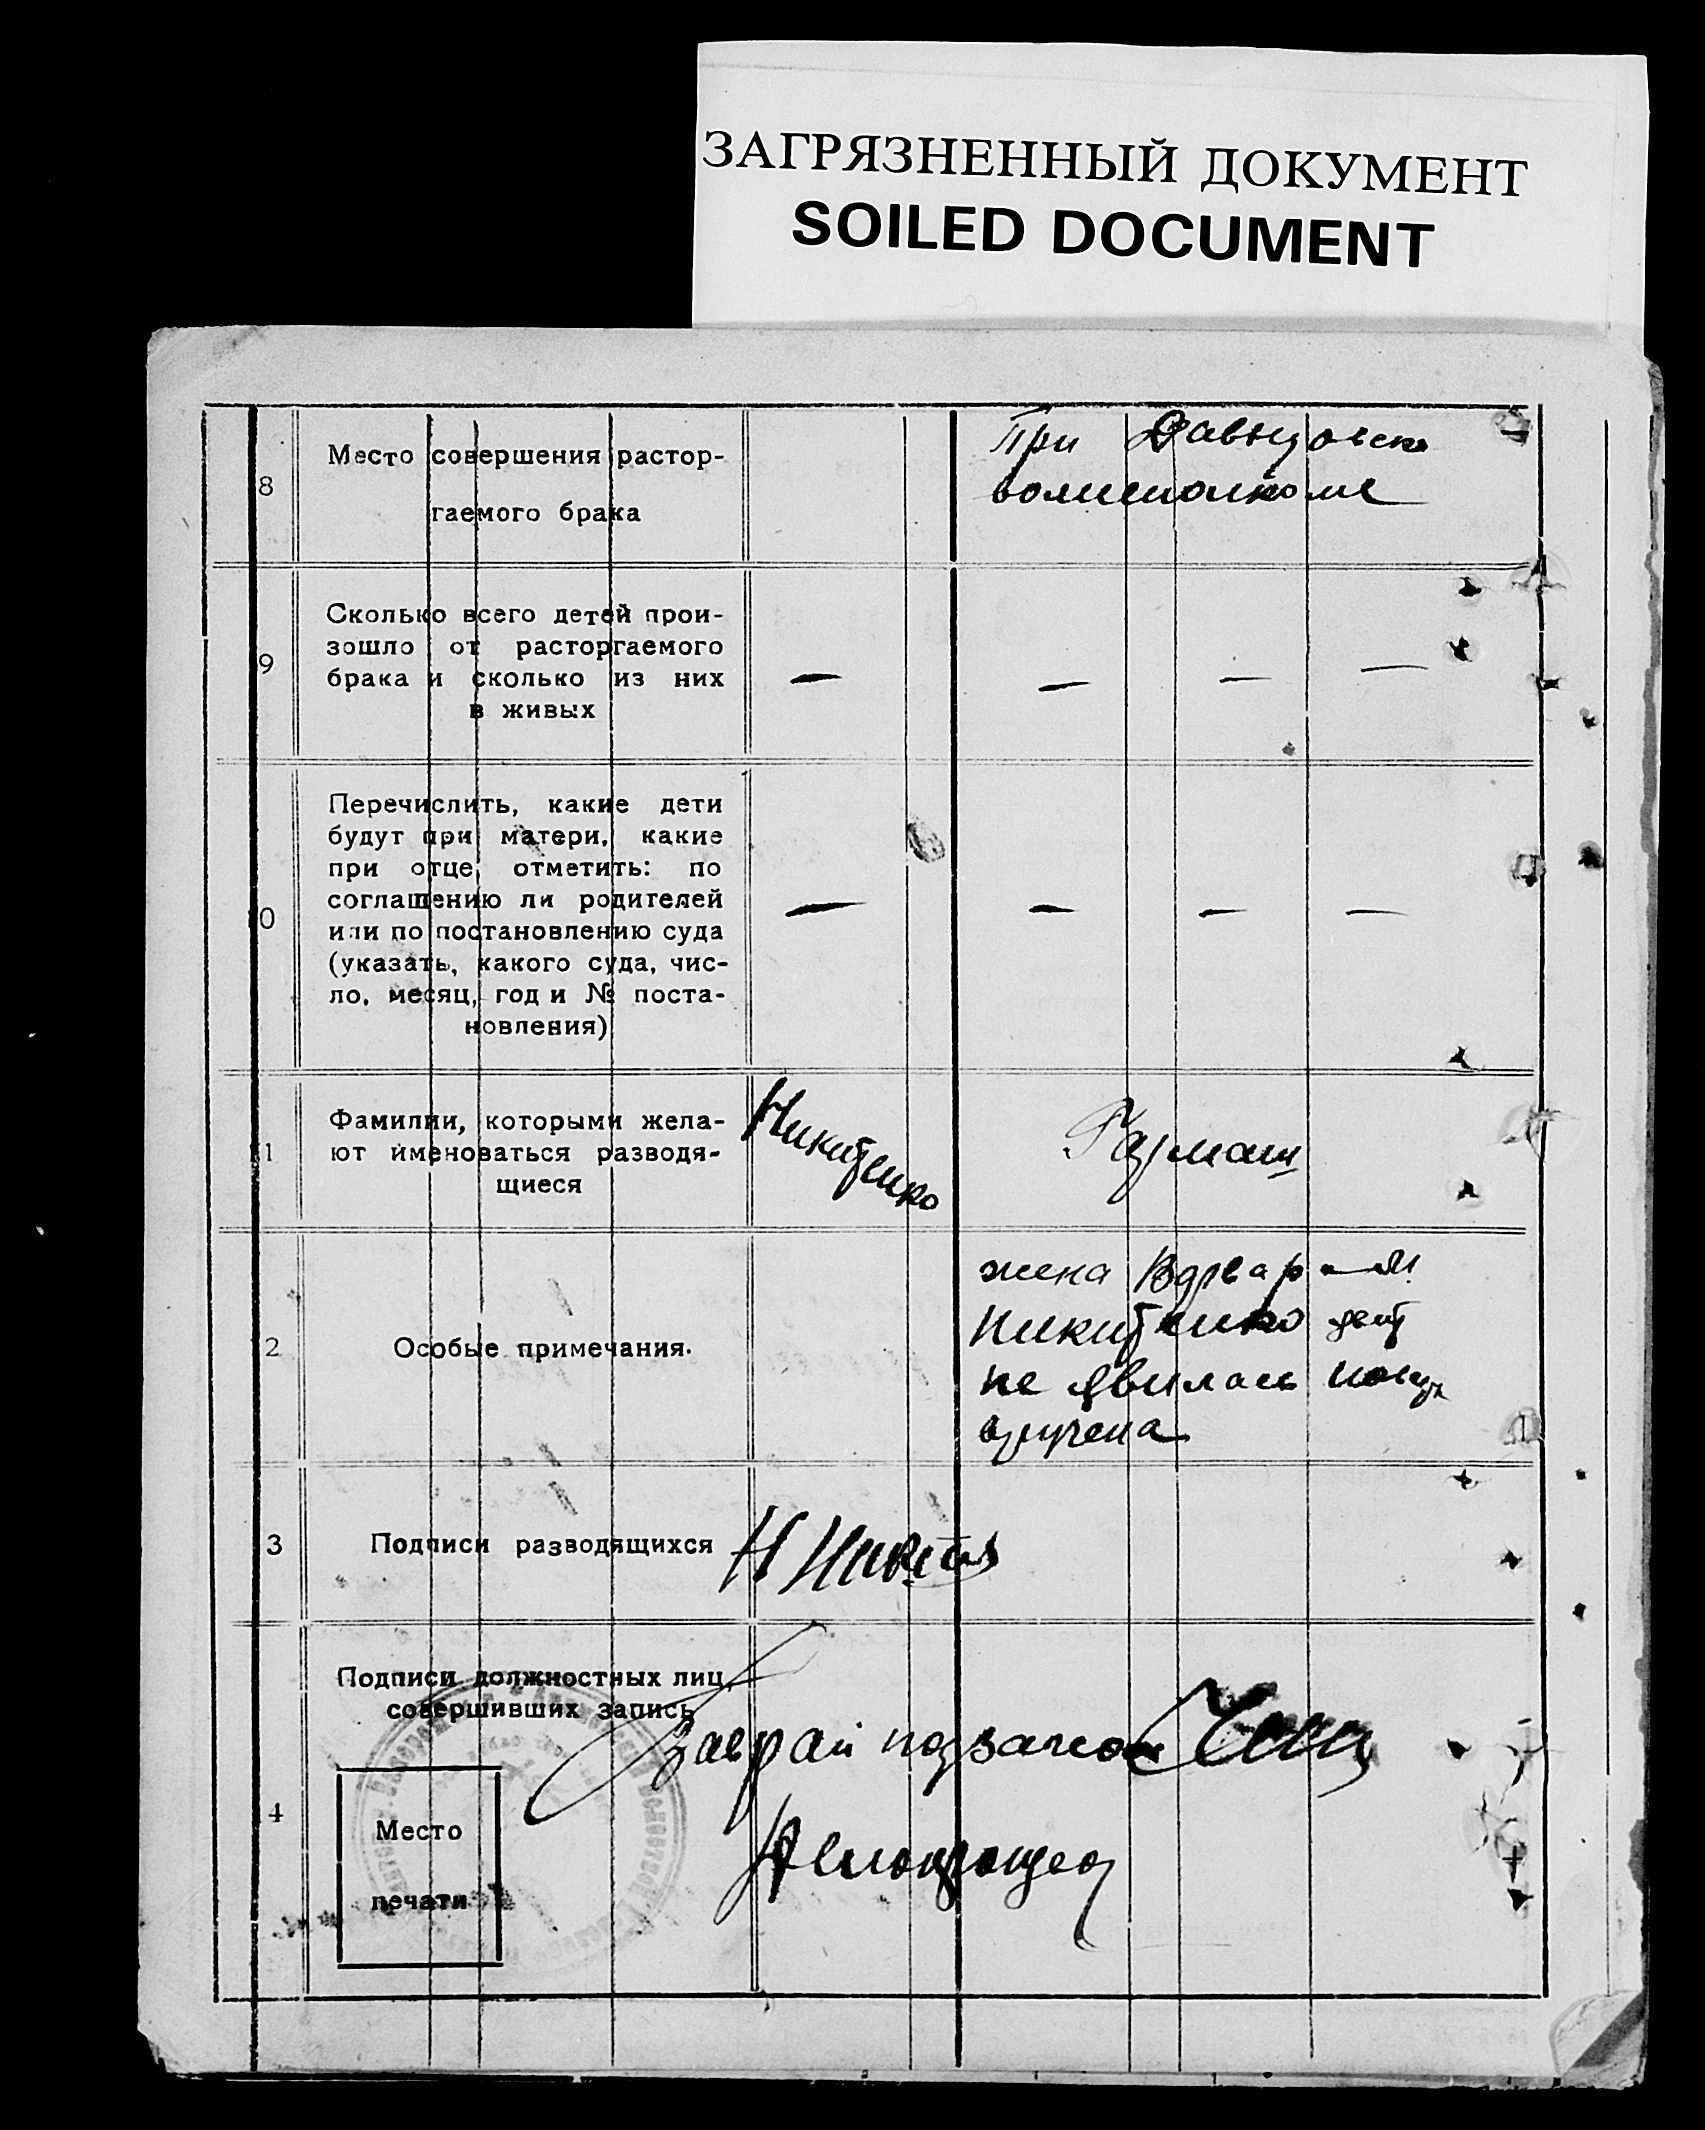 ЗАГРЯЗНЕННЫЙ ДОКУМЕНТ
SOILED DOCUMENT
8
Место совершения растор-
гаемого брака
При Давыдовском
волисполкоме
9
Сколько всего детей прои-
зошло от расторгаемого
брака и сколько из них
в живых
— — — —
10
Перечислить, какие дети
будут при матери, какие
при отце, отметить: по
соглашению ли родителей
или по постановлению суда
(указать, какого суда, чис-
ло, месяц, год и № поста-
новления)
— — — —
11
Фамилии, которыми жела-
ют именоваться разводя-
щиеся
Никитенко
Гармаш
12
Особые примечания.
жена Варвара
Никитенко
не явилась
вручена
3
Подписи разводящихся
Н Никит
14
Подписи должностных лиц,
совершивших запись
Заврай подзагсом
Место
печати